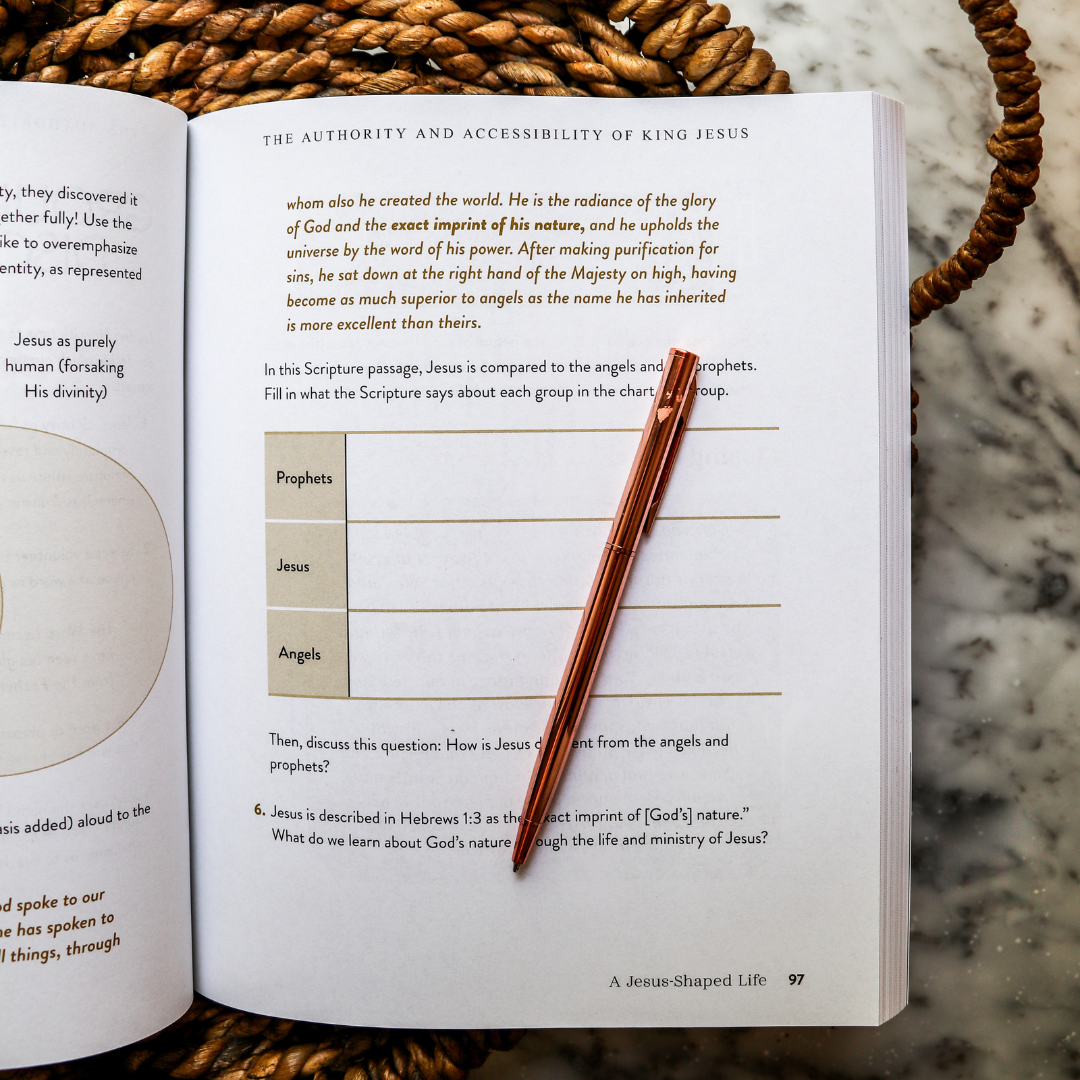 ty, they discovered it
ether fully! Use the
ike to overemphasize
entity, as represented
Jesus as purely
human (forsaking
His divinity)
asis added) aloud to the
od spoke to our
he has spoken to
ll things, through
THE AUTHORITY AND ACCESSIBILITY OF KING JESUS
whom also he created the world. He is the radiance of the glory
of God and the exact imprint of his nature, and he upholds the
universe by the word of his power. After making purification for
sins, he sat down at the right hand of the Majesty on high, having
become as much superior to angels as the name he has inherited
is more excellent than theirs.
In this Scripture passage, Jesus is compared to the angels and prophets.
Fill in what the Scripture says about each group in the chart roup.
Prophets
Jesus
Angels
Then, discuss this question: How is Jesus d ent from the angels and
prophets?
6. Jesus is described in Hebrews 1:3 as the xact imprint of [God's] nature."
What do we learn about God's nature ough the life and ministry of Jesus?
A Jesus-Shaped Life 97